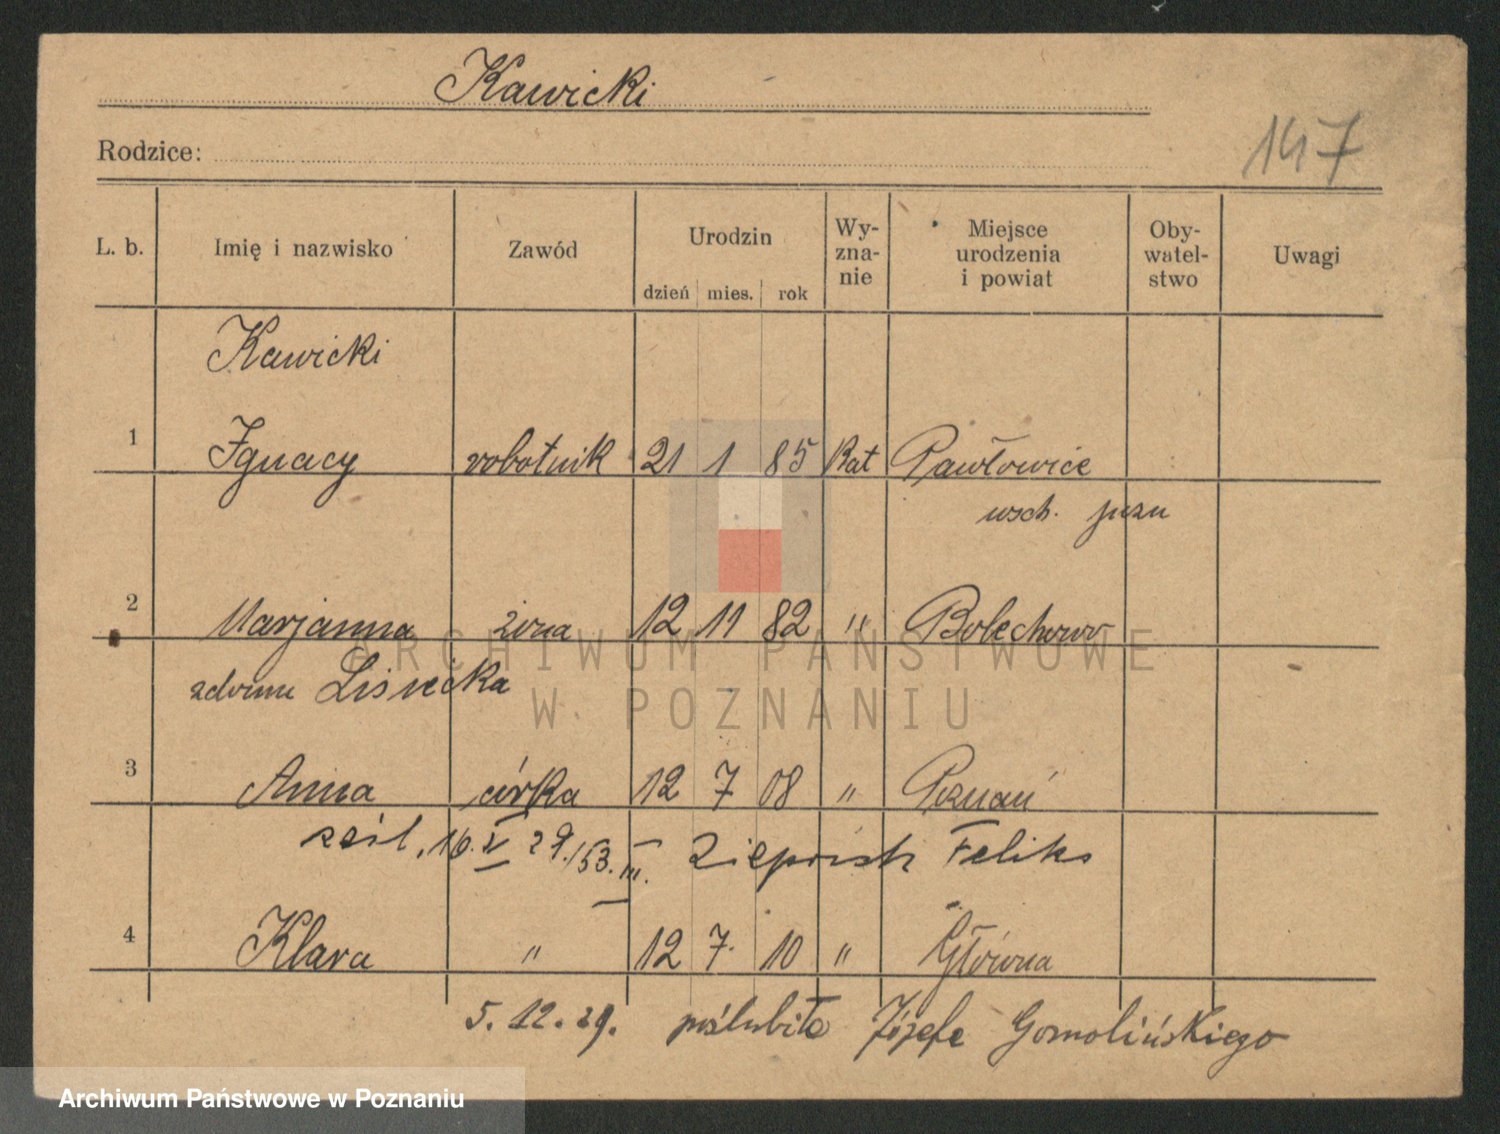 Kawicki
147
Rodzice:
L. b. Imię i nazwisko Zawód Urodzin dzień mies. rok Wy-zna-nie Miejsce urodzenia i powiat Oby-watel-stwo Uwagi
Kawicki
1 Ignacy robotnik 21 1 85 Kat Pawłowice
wsch.
2 Marjanna żona 12 11 82 " Bolechowo
zdomu Lisiecka
3 Anna córka 12 7 08 " Poznań
zaśl. 16.V 29./53.III. Feliks
4 Klara " 12 7. 10 " Główna
5. 12. 29. poślubiła Józefa Gomolińskiego
ARCHIWUM PAŃSTWOWE
W POZNANIU
Archiwum Państwowe w Poznaniu